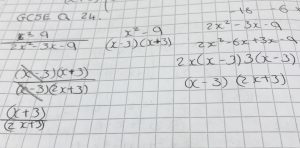 -18 -6 x
GCSE Q 24.
x² 9
2x² - 3x - 9
(x - 3)(x+3)
(x - 3)(2x+3)
(x+3)
(2x+3)
x² - 9
(x-3)(x+3)
2x² - 3x - 9
2x² - 6x + 3x - 9
2x(x - 3) 3(x - 3)
(x - 3) (2x+3)